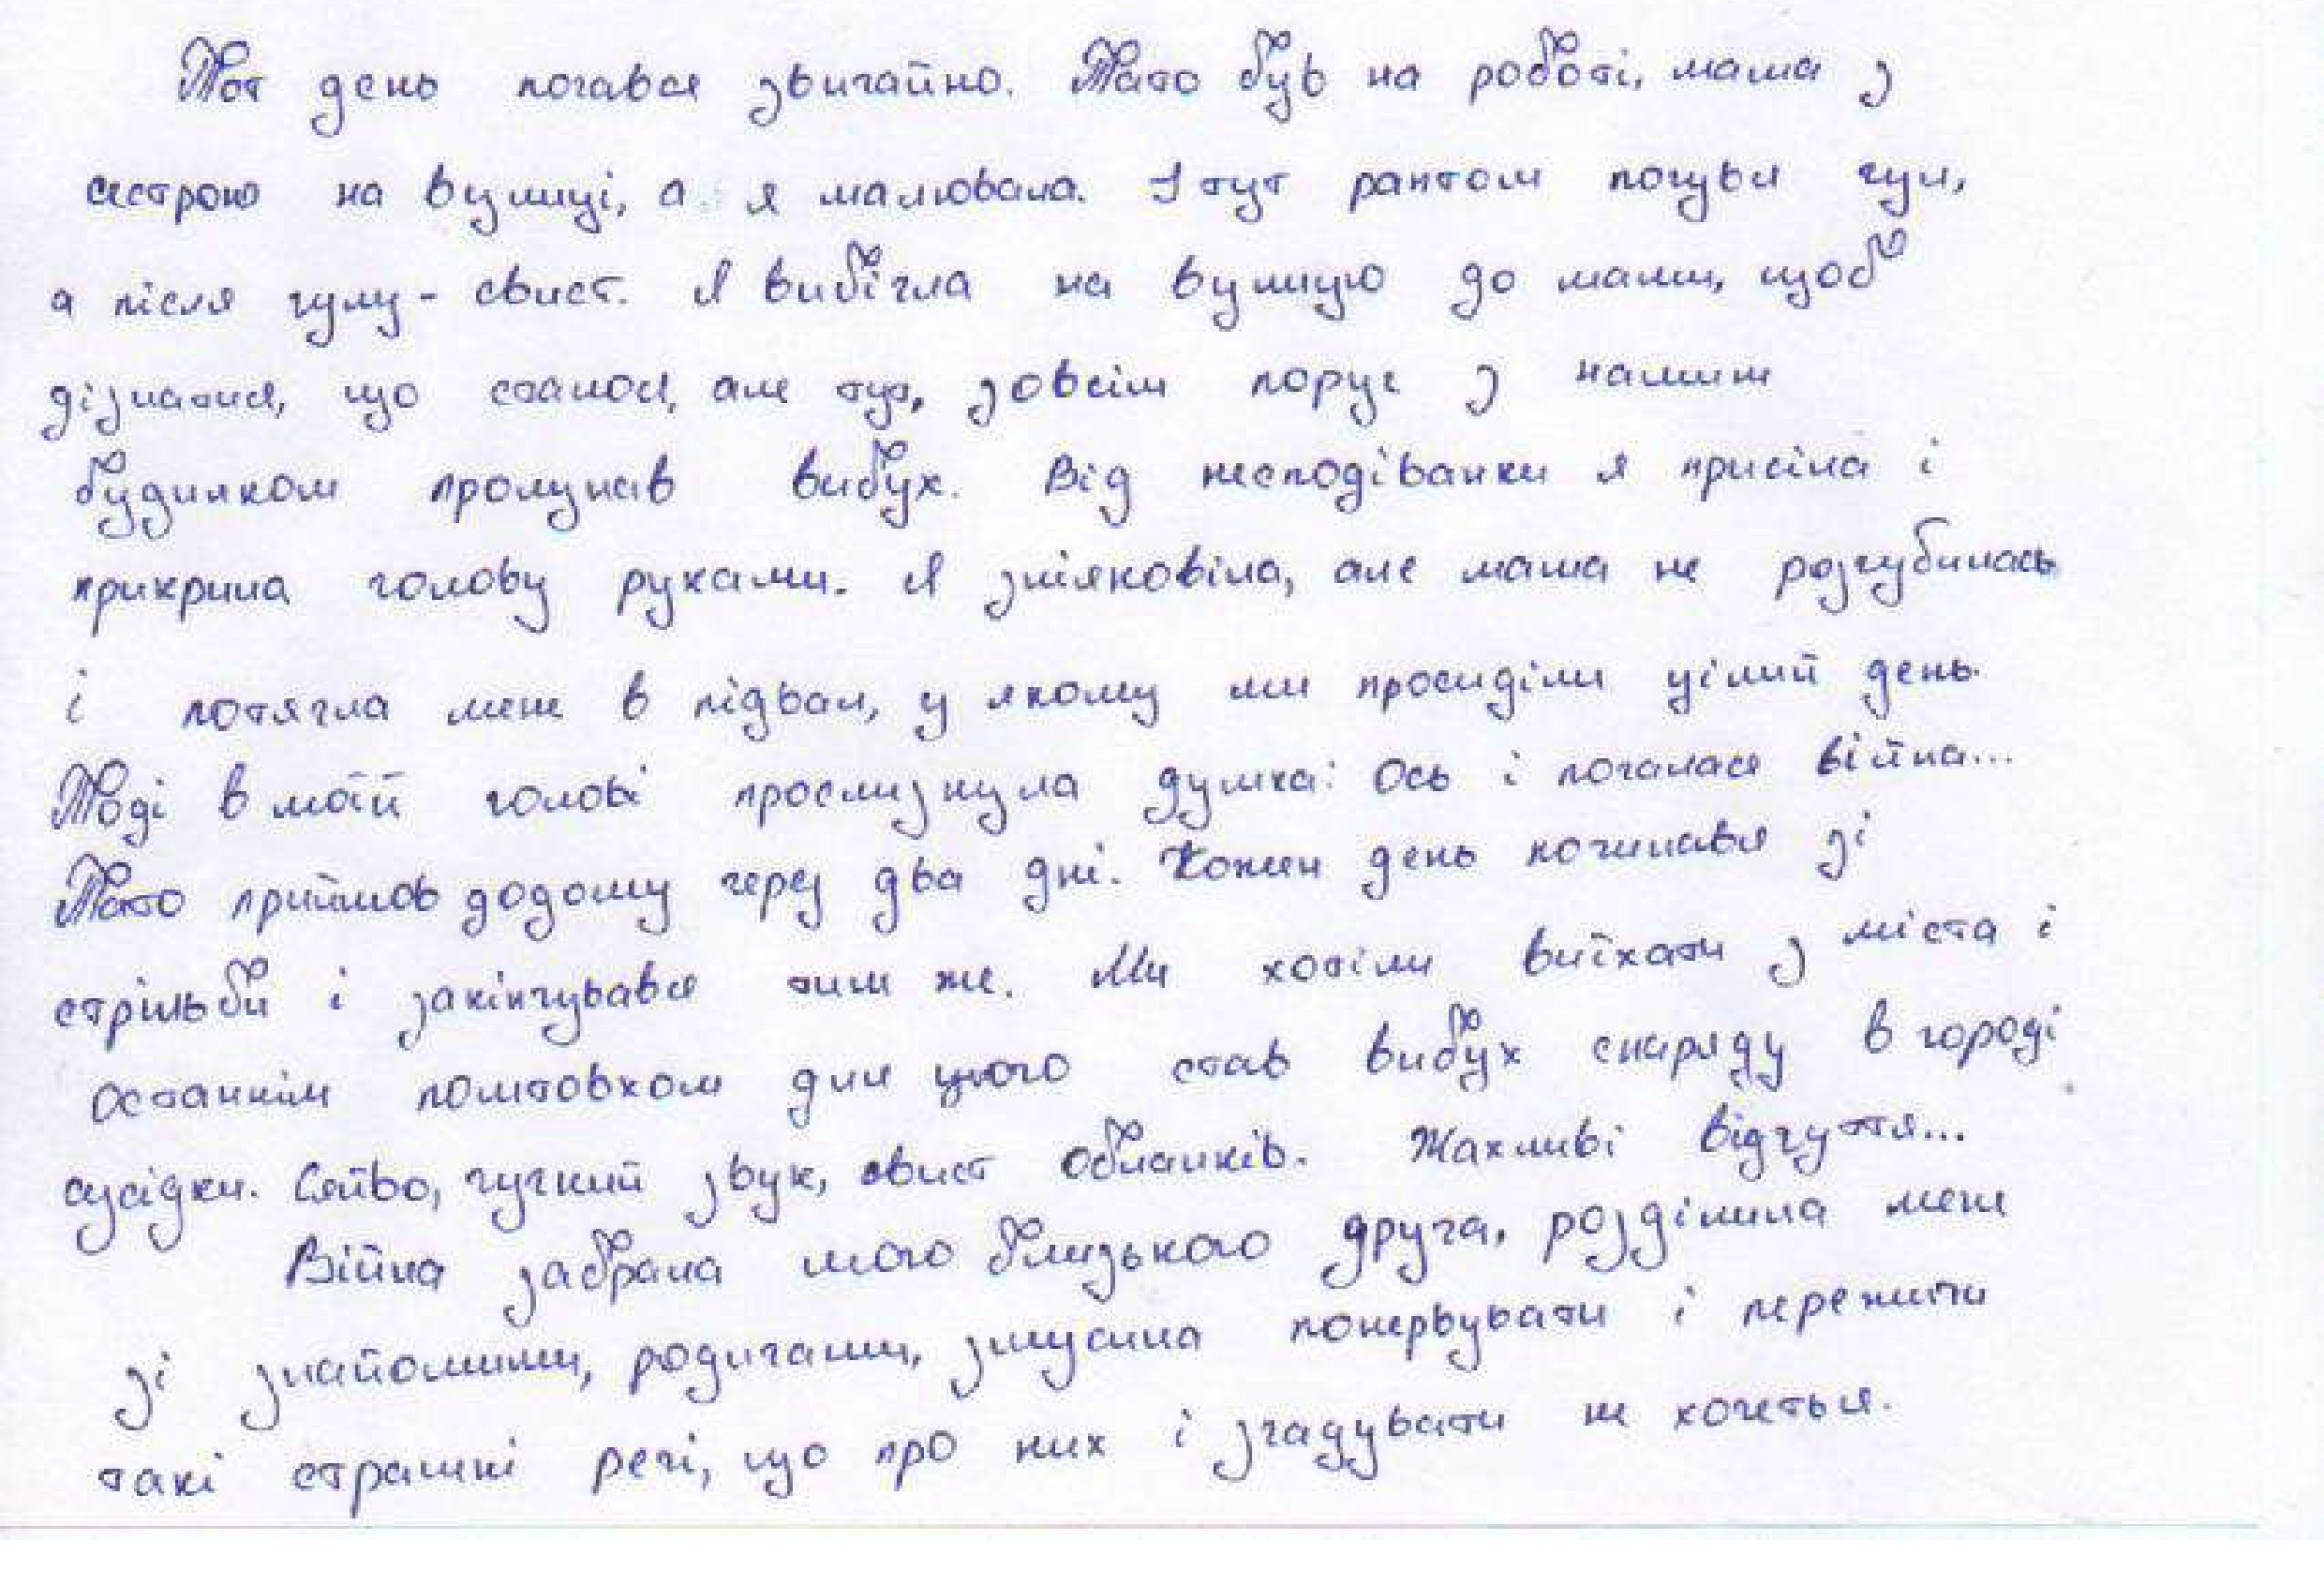 Тот день почався звичайно. Тато був на роботі, мама з
сестрою на вулиці, а я малювала. І тут раптом почувся гул,
а після гулу - свист. Я вибігла на вулицю до мами, щоб
дізнатися, що сталося, але тут, зовсім поруч з нашим
будинком пролунав вибух. Від несподіванки я присіла і
прикрила голову руками. Я зніяковіла, але мама не розгубилась
і потягла мене в підвал, у якому ми просиділи цілий день.
Тоді в моїй голові прослизнула думка: Ось і почалася війна...
Тато прийшов додому через два дні. Кожен день починався зі
стрільби і закінчувався тим же. Ми хотіли виїхати з міста і
останнім поштовхом для цього став вибух снаряду в городі
сусідки. Сяйво, гучний звук, свист обланків. Жахливі відчуття...
Війна забрала мого близького друга, розділила мене
зі знайомими, родичами, змусила понервувати і пережити
такі страшні речі, що про них і згадувати не хочеться.